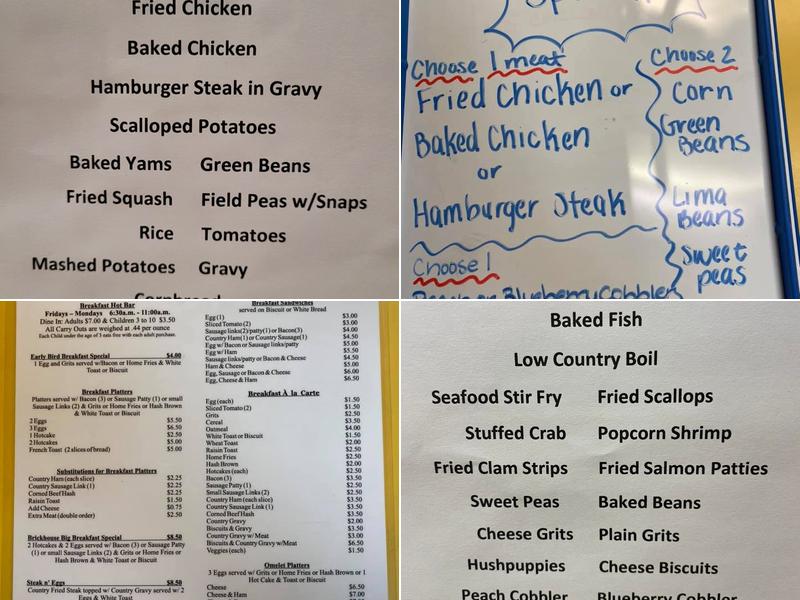 Fried Chicken
Baked Chicken
Hamburger Steak in Gravy
Scalloped Potatoes
Baked Yams Green Beans
Fried Squash Field Peas w/Snaps
Rice Tomatoes
Mashed Potatoes Gravy
Cornbread
Choose 1 meat
Fried Chicken or
Baked Chicken
or
Hamburger Steak
Choose 1
Peach or Blueberry Cobbler
Choose 2
Corn
Green
Beans
Lima
Beans
Sweet
peas
Breakfast Hot Bar
Fridays – Mondays 6:30a.m. - 11:00a.m.
Dine In: Adults $7.00 & Children 3 to 10 $3.50
All Carry Outs are weighed at .44 per ounce
Each Child under the age of 3 eats free with each adult purchase.
Early Bird Breakfast Special $4.00
1 Egg and Grits served w/Bacon or Home Fries & White
Toast or Biscuit
Breakfast Platters
Platters served w/ Bacon (3) or Sausage Patty (1) or small
Sausage Links (2) & Grits or Home Fries or Hash Brown
& White Toast or Biscuit
2 Eggs $5.50
3 Eggs $6.50
1 Hotcake $2.50
2 Hotcakes $5.00
French Toast (2 slices of bread) $5.00
Substitutions for Breakfast Platters
Country Ham (each slice) $2.25
Country Sausage Link (1) $2.25
Corned Beef Hash $2.25
Raisin Toast $1.50
Add Cheese $0.75
Extra Meat (double order) $2.50
Brickhouse Big Breakfast Special $8.50
2 Hotcakes & 2 Eggs served w/ Bacon (3) or Sausage Patty
(1) or small Sausage Links (2) & Grits or Home Fries or
Hash Brown & White Toast or Biscuit
Steak n' Eggs $8.50
Country Fried Steak topped w/ Country Gravy served w/ 2
Eggs & White Toast
Breakfast Sandwiches
served on Biscuit or White Bread
Egg (1) $3.00
Sliced Tomato (2) $3.50
Sausage links(2)/patty(1) or Bacon(3) $4.00
Country Ham(1) or Country Sausage(1) $4.50
Egg w/ Bacon or Sausage links/patty $5.00
Egg w/ Ham $5.50
Sausage links/patty or Bacon & Cheese $4.50
Ham & Cheese $5.00
Egg, Sausage or Bacon & Cheese $6.00
Egg, Cheese & Ham $6.50
Breakfast À la Carte
Egg (each) $1.50
Sliced Tomato (2) $1.50
Grits $2.50
Cereal $3.50
Oatmeal $4.00
White Toast or Biscuit $1.50
Wheat Toast $2.00
Raisin Toast $2.50
Home Fries $2.50
Hash Brown $2.00
Hotcakes (each) $2.50
Bacon (3) $3.50
Sausage Patty (1) $2.50
Small Sausage Links (2) $2.50
Country Ham (each slice) $3.50
Country Sausage Link (1) $3.50
Corned Beef Hash $3.50
Country Gravy $2.00
Biscuits & Gravy $3.50
Country Gravy w/ Meat $3.00
Biscuits & Country Gravy w/Meat $6.50
Veggies (each) $1.50
Omelet Platters
3 Eggs served w/ Grits or Home Fries or Hash Brown or 1
Hot Cake & Toast or Biscuit
Cheese $6.50
Cheese & Ham $7.00
Baked Fish
Low Country Boil
Seafood Stir Fry Fried Scallops
Stuffed Crab Popcorn Shrimp
Fried Clam Strips Fried Salmon Patties
Sweet Peas Baked Beans
Cheese Grits Plain Grits
Hushpuppies Cheese Biscuits
Peach Cobbler Blueberry Cobbler